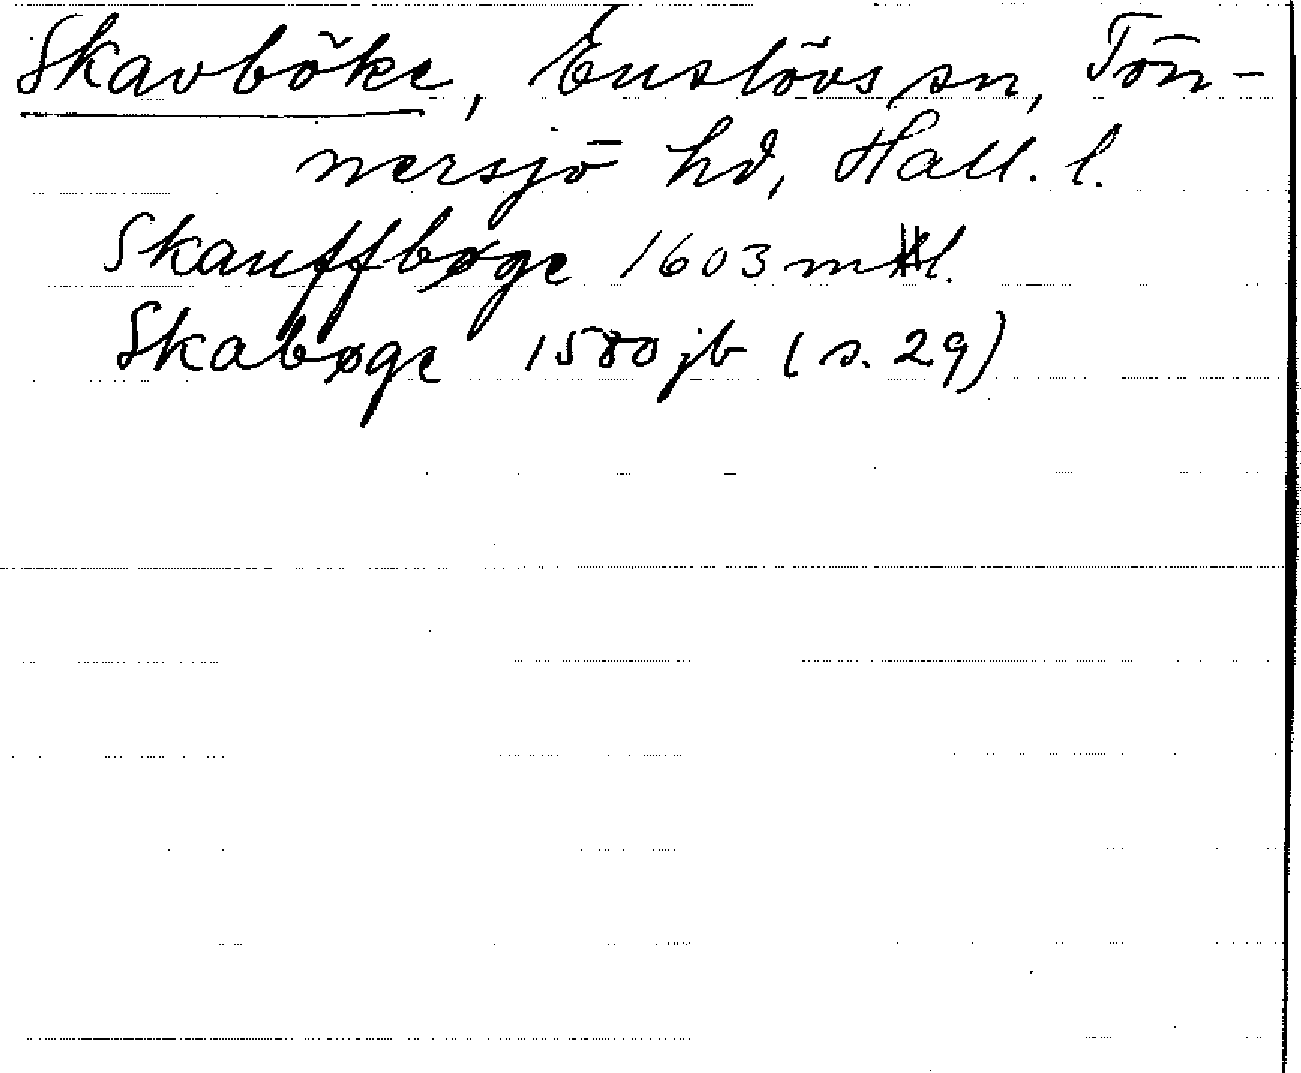 Skavböke, Enslövs sn, Tön-
nersjö hd, Hall. l.
Skauffbøge 1603 mtl.
Skabøge 1580 jb (s. 29)